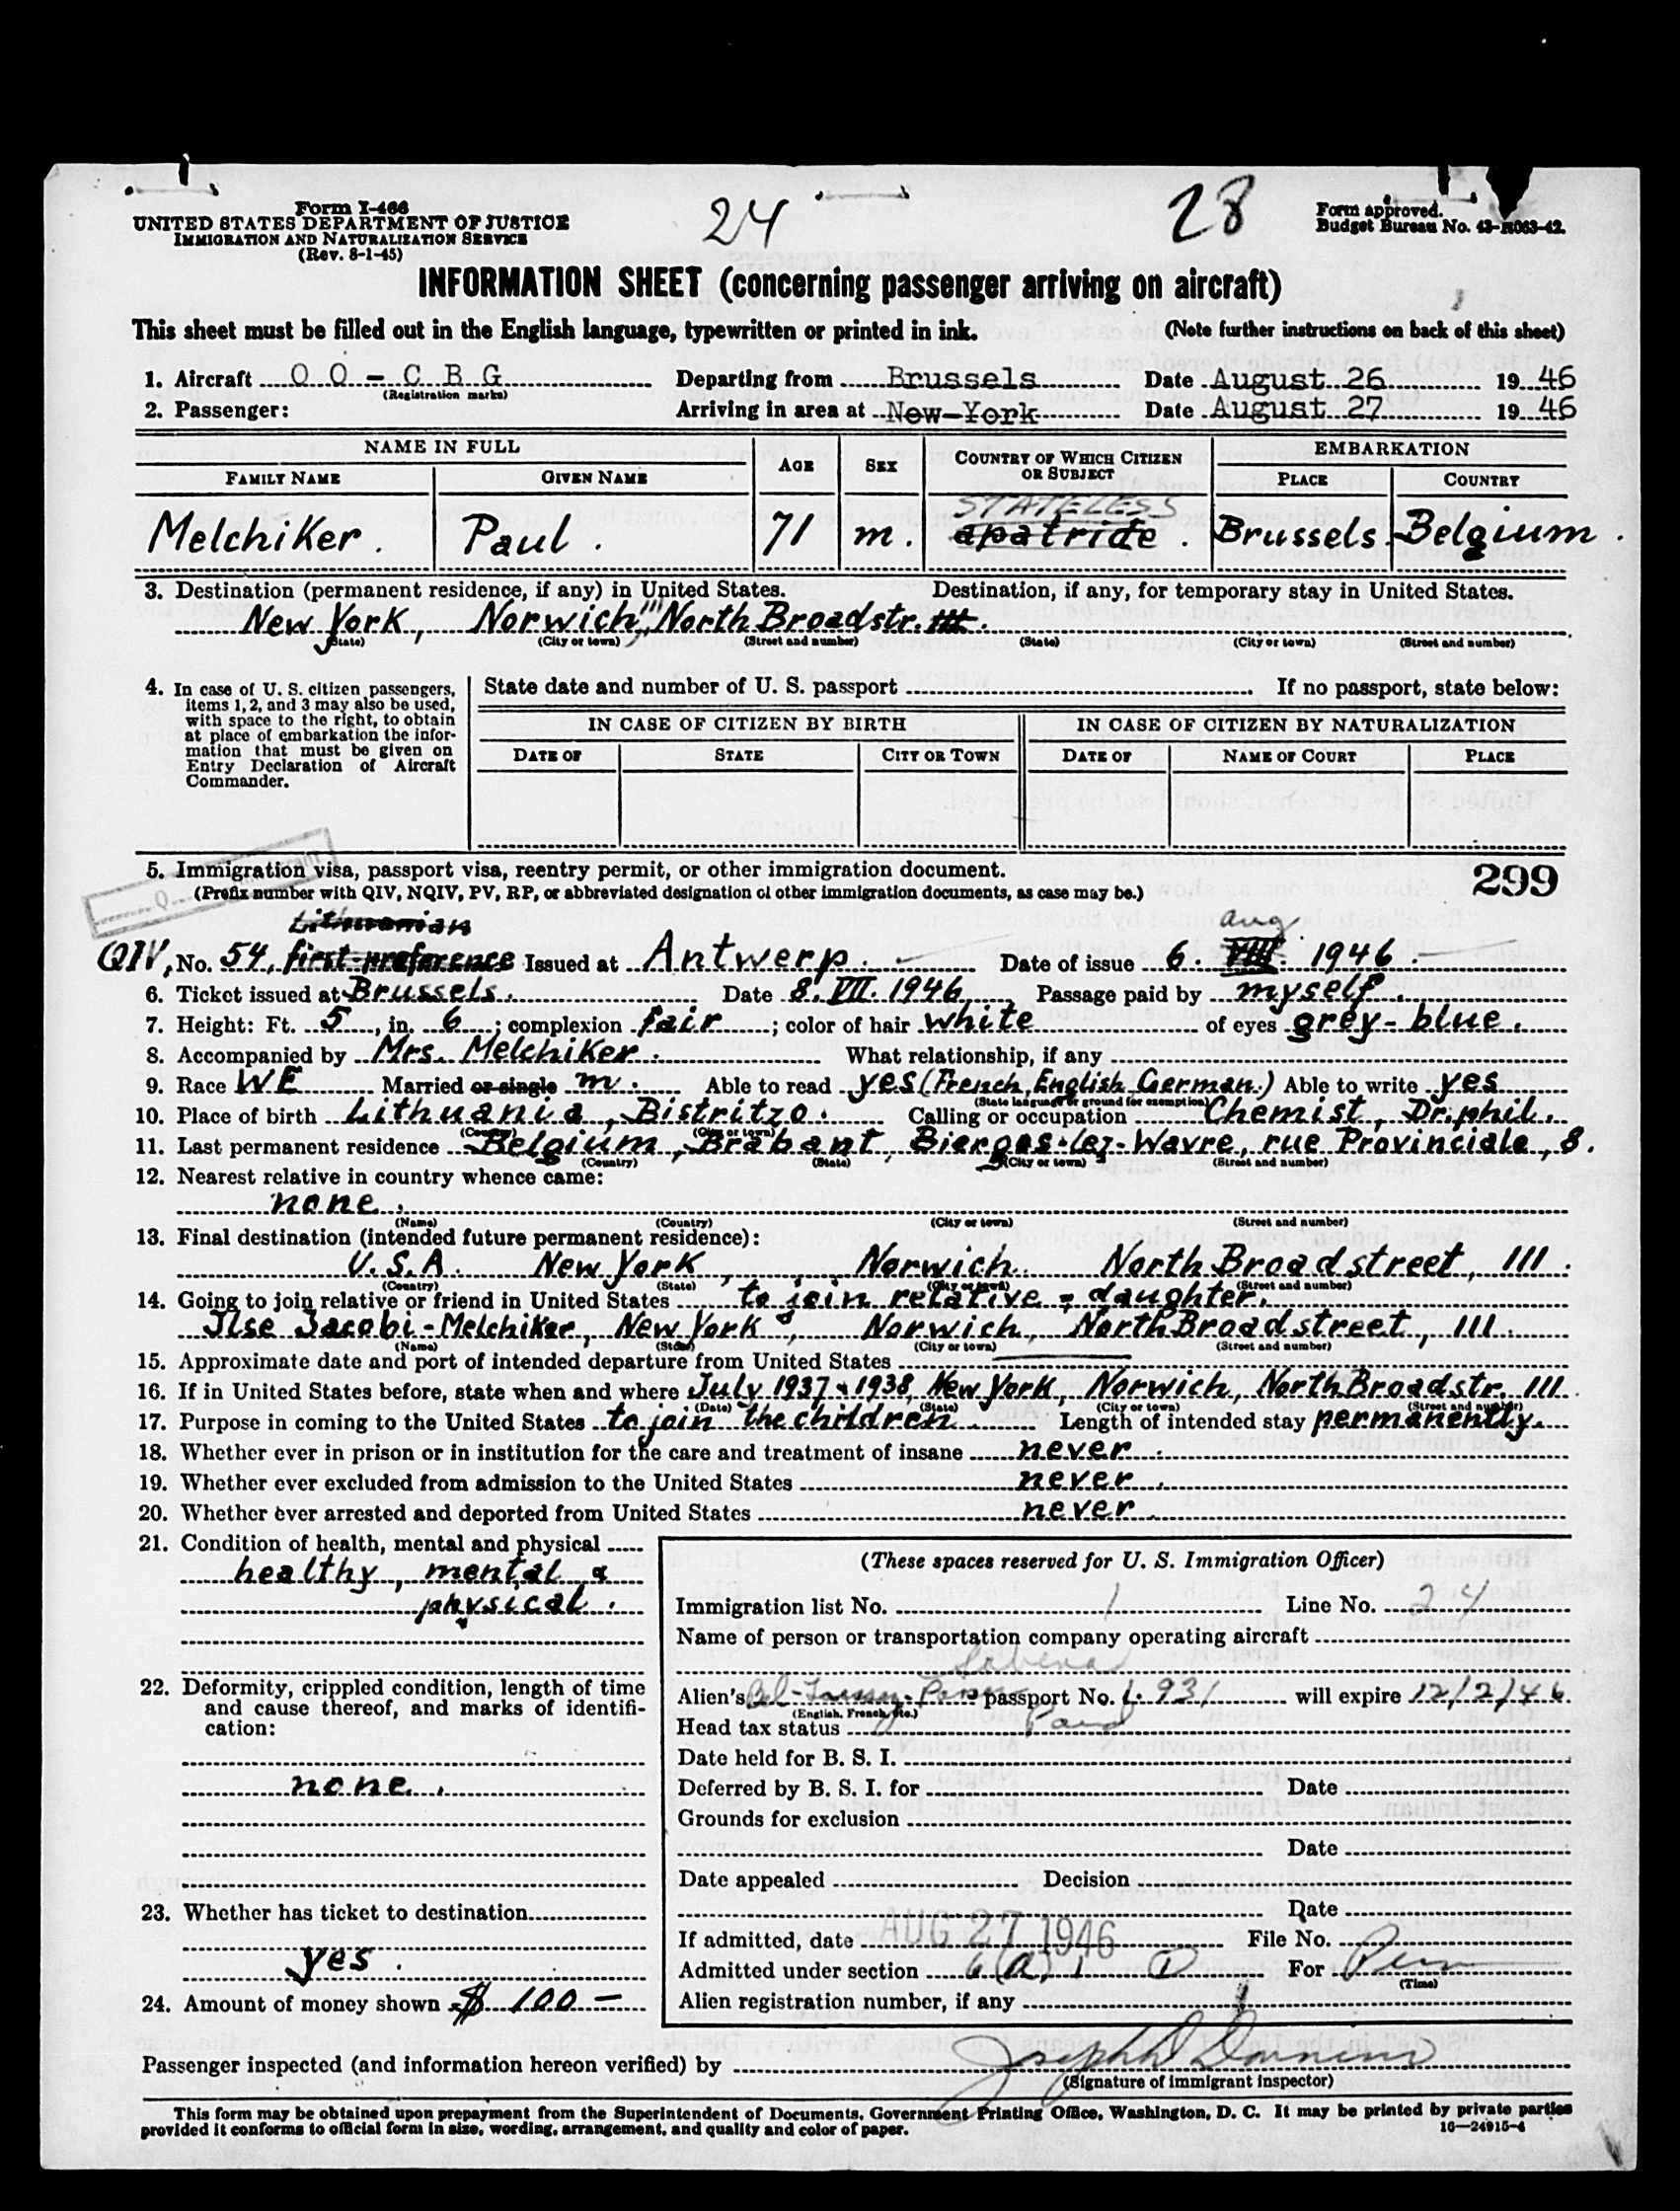 24
28
Form I-466
UNITED STATES DEPARTMENT OF JUSTICE
IMMIGRATION AND NATURALIZATION SERVICE
(Rev. 8-1-45)
Form approved.
Budget Bureau No. 43-R063-42.
INFORMATION SHEET (concerning passenger arriving on aircraft)
This sheet must be filled out in the English language, typewritten or printed in ink. (Note further instructions on back of this sheet)
1. Aircraft OO-CBG Departing from Brussels Date August 26 1946
(Registration marks)
2. Passenger: Arriving in area at New-York Date August 27 1946
NAME IN FULL AGE SEX COUNTRY OF WHICH CITIZEN OR SUBJECT EMBARKATION
FAMILY NAME GIVEN NAME PLACE COUNTRY
STATELESS
Melchiker. Paul. 71 m. apatride. Brussels. Belgium.
3. Destination (permanent residence, if any) in United States. Destination, if any, for temporary stay in United States.
New York, Norwich, 111 North Broadstr. 111.
(State) (City or town) (Street and number) (State) (City or town) (Street and number)
4. In case of U. S. citizen passengers, items 1, 2, and 3 may also be used, with space to the right, to obtain at place of embarkation the information that must be given on Entry Declaration of Aircraft Commander.
State date and number of U. S. passport If no passport, state below:
IN CASE OF CITIZEN BY BIRTH IN CASE OF CITIZEN BY NATURALIZATION
DATE OF STATE CITY OR TOWN DATE OF NAME OF COURT PLACE
5. Immigration visa, passport visa, reentry permit, or other immigration document. 299
(Prefix number with QIV, NQIV, PV, RP, or abbreviated designation of other immigration documents, as case may be.)
Lithuanian
Aug
QIV, No. 54, first preference Issued at Antwerp. Date of issue 6. VIII. 1946.
6. Ticket issued at Brussels. Date 8. VII. 1946. Passage paid by myself.
7. Height: Ft. 5, in. 6; complexion fair; color of hair white of eyes grey-blue.
8. Accompanied by Mrs. Melchiker. What relationship, if any
9. Race WE Married or single m. Able to read yes (French, English, German.) Able to write yes
(State language or ground for exemption)
10. Place of birth Lithuania, Bistritzo. Calling or occupation Chemist, Dr. phil.
(Country) (City or town)
11. Last permanent residence Belgium, Brabant, Bierges-lez-Wavre, rue Provinciale, 8.
(Country) (State) (City or town) (Street and number)
12. Nearest relative in country whence came:
none.
(Name) (Country) (City or town) (Street and number)
13. Final destination (intended future permanent residence):
U.S.A. New York, Norwich North Broadstreet, 111.
(Country) (State) (City or town) (Street and number)
14. Going to join relative or friend in United States to join relative = daughter.
Ilse Jacobi-Melchiker, New York, Norwich, North Broadstreet, 111.
(Name) (State) (City or town) (Street and number)
15. Approximate date and port of intended departure from United States
16. If in United States before, state when and where July 1937 & 1938, New York, Norwich, North Broadstr. 111.
(Date) (State) (City or town) (Street and number)
17. Purpose in coming to the United States to join the children. Length of intended stay permanently.
18. Whether ever in prison or in institution for the care and treatment of insane never.
19. Whether ever excluded from admission to the United States never.
20. Whether ever arrested and deported from United States never.
21. Condition of health, mental and physical
healthy, mental &
physical.
22. Deformity, crippled condition, length of time and cause thereof, and marks of identification:
none.
23. Whether has ticket to destination
yes.
24. Amount of money shown $ 100 —
(These spaces reserved for U. S. Immigration Officer)
Immigration list No. 1 Line No. 24
Name of person or transportation company operating aircraft
Sabena
Alien's passport No. 931 will expire 12/2/46
(English, French, etc.)
Head tax status Paid
Date held for B. S. I.
Deferred by B. S. I. for Date
Grounds for exclusion
Date
Date appealed Decision
Date
If admitted, date AUG 27 1946 File No.
Admitted under section 6(a) 1 For Perm
(Time)
Alien registration number, if any
Passenger inspected (and information hereon verified) by Joseph
(Signature of immigrant inspector)
This form may be obtained upon prepayment from the Superintendent of Documents, Government Printing Office, Washington, D. C. It may be printed by private parties
provided it conforms to official form in size, wording, arrangement, and quality and color of paper. 16—24915-4